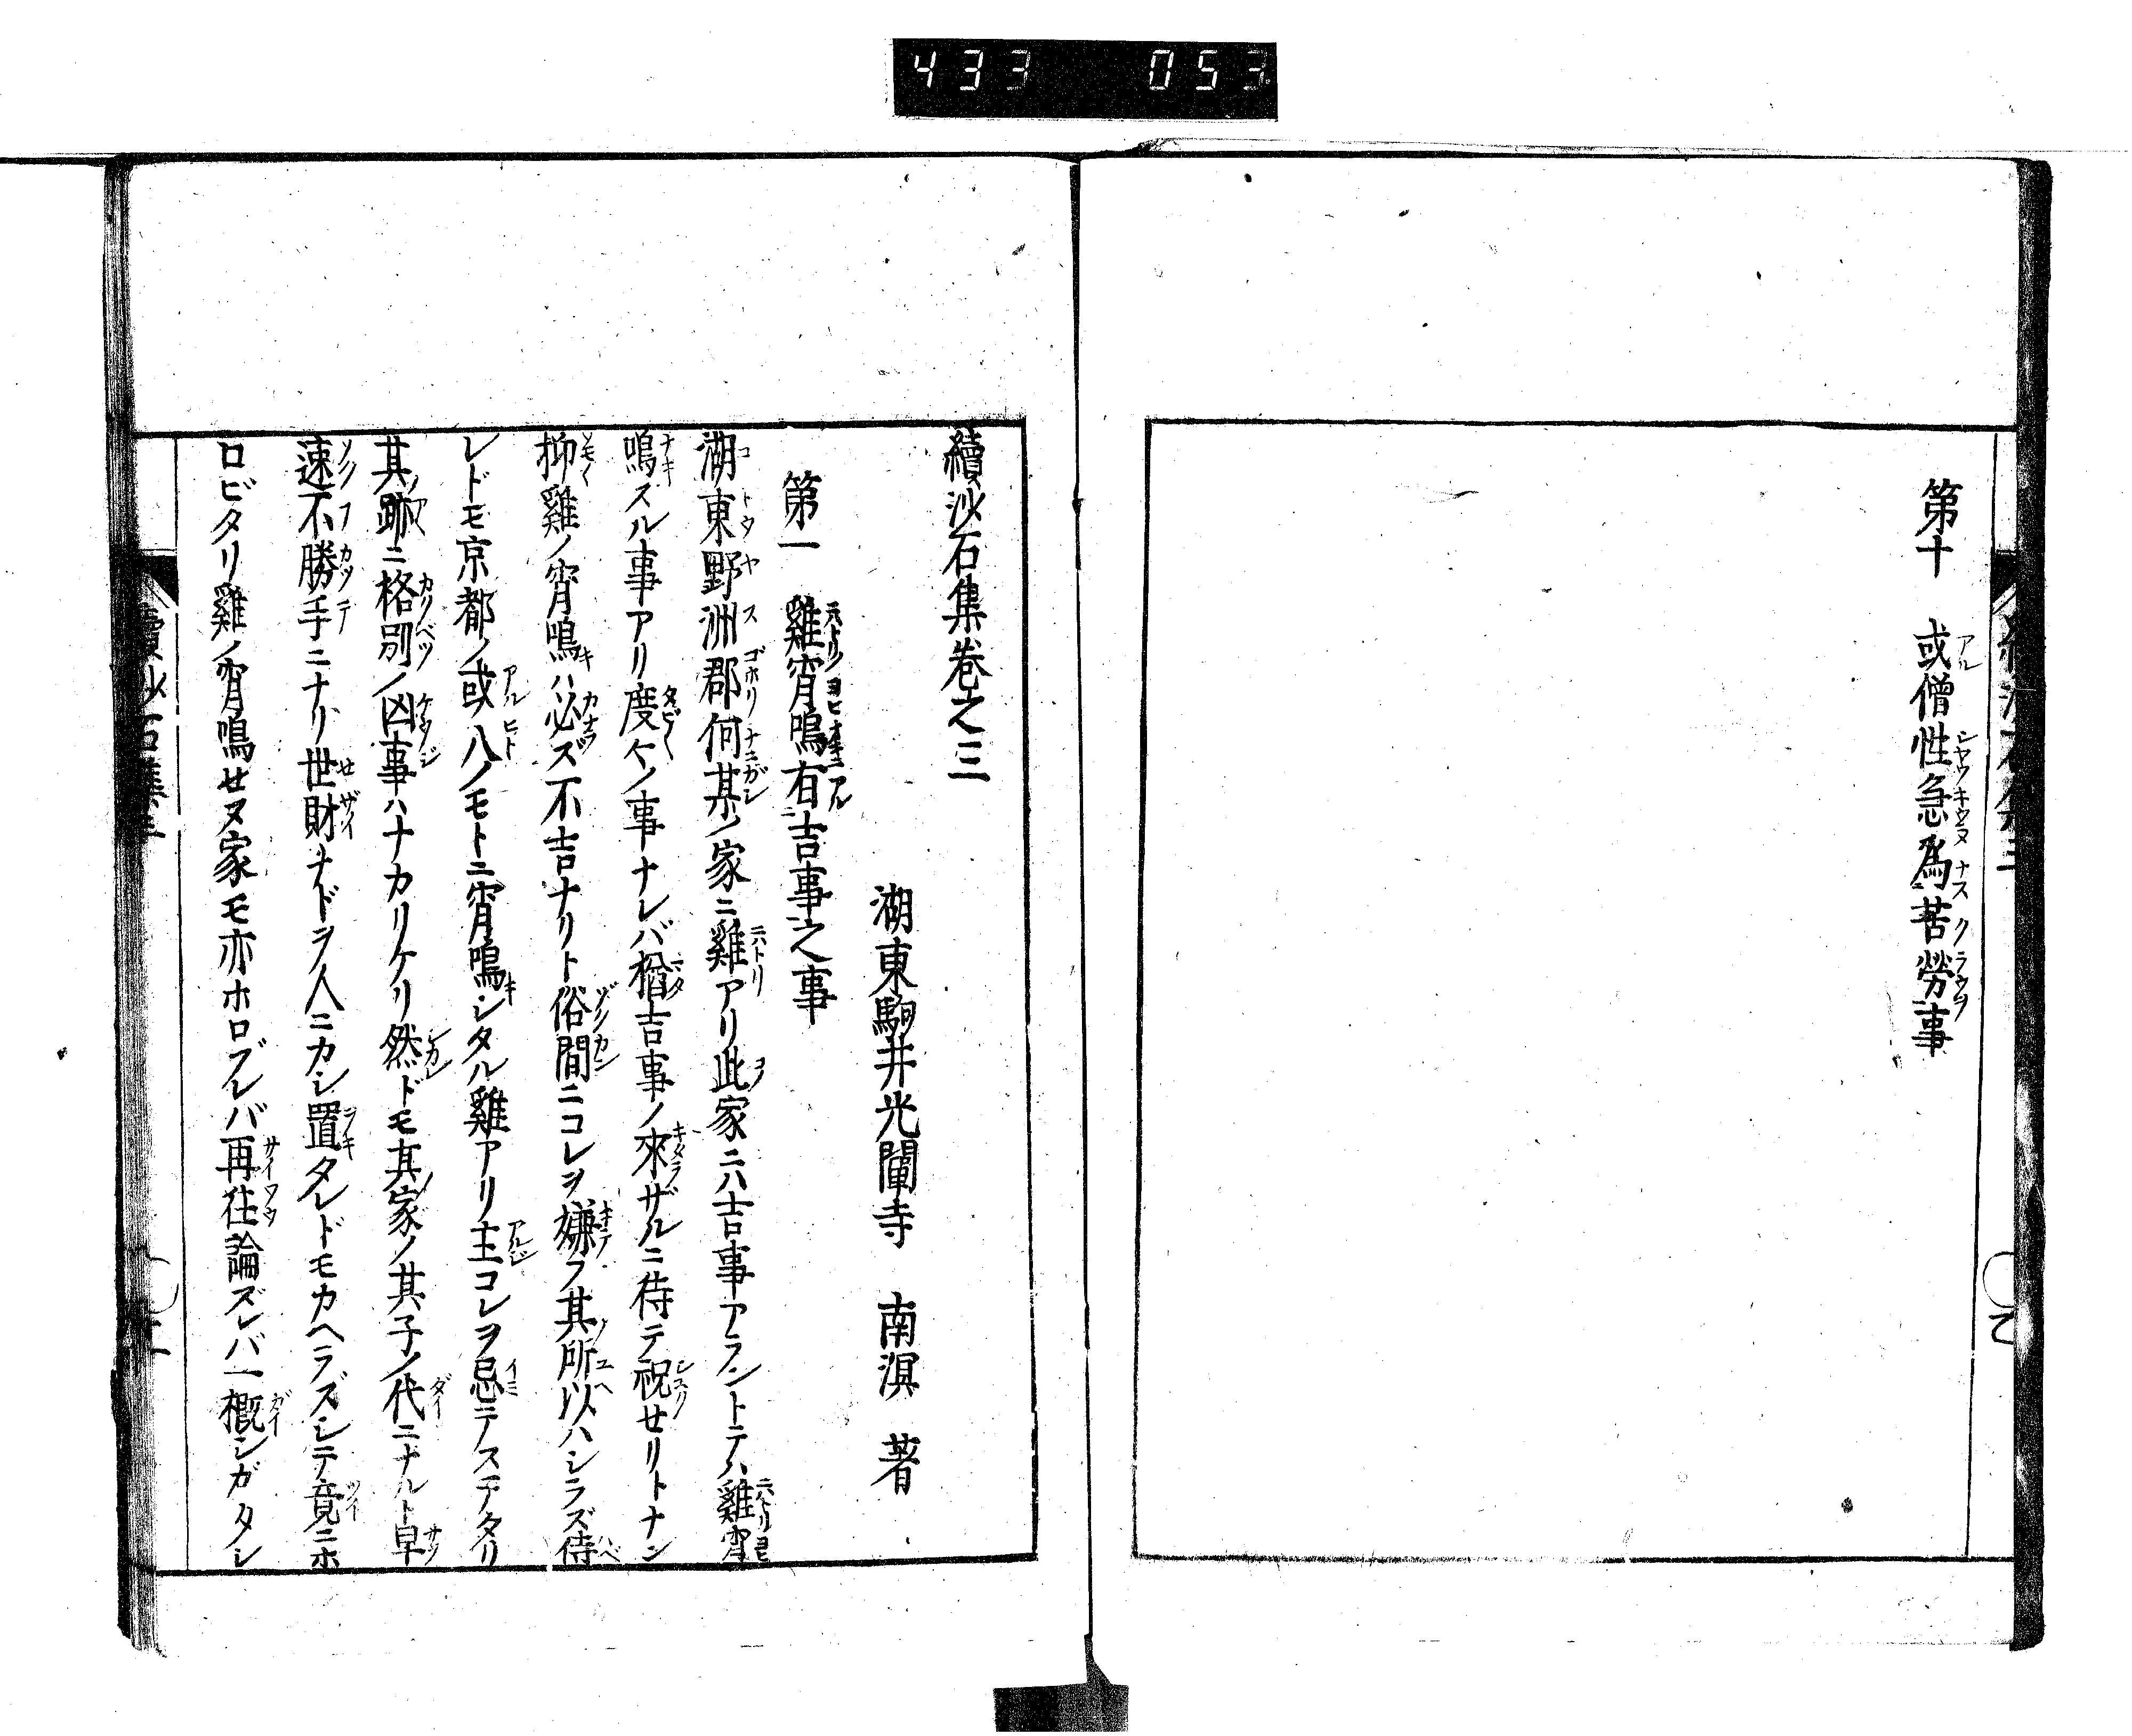 433 053
第十 或僧性急為苦勞事
續沙石集卷之三
湖東駒井光闡寺 南溟 著
第一 雞宵鳴有吉事之事
湖東野洲郡何某ノ家ニ雞アリ此家ニハ吉事アラントテハ雞宵
鳴スル事アリ度々ノ事ナレバ猶吉事ノ來ザルニ待テ祝セリトナン
抑雞ノ宵鳴ハ必ズ不吉ナリト俗間ニコレヲ嫌フ其所以ハシラズ侍
レドモ京都ノ或人ノモトニ宵鳴シタル雞アリ主コレヲ忌テステタリ
其跡ニ格別ノ凶事ハナカリケリ然ドモ其家ノ其子ノ代ニナルト早
速不勝手ニナリ世財ナドヲ人ニカシ置タレドモカヘラズシテ竟ニホ
ロビタリ雞ノ宵鳴セヌ家モ亦ホロブレバ再往論ズレバ一概シガタシ